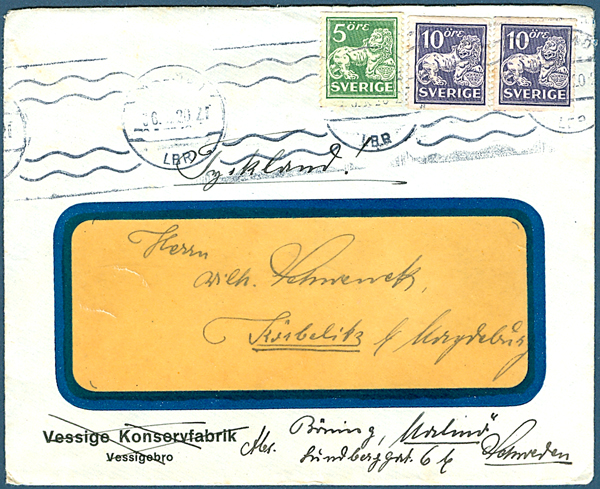 5 öre
SVERIGE
10 öre
SVERIGE
10 öre
SVERIGE
LBR
LBR
LBR
Tyskland!
Herrn
Wilh. Schwenck,
Körbelitz b/ Magdeburg
Vessige Konservfabrik
Vessigebro
Abs. Böning, Malmö
Lundbergsgat. 6
Schweden